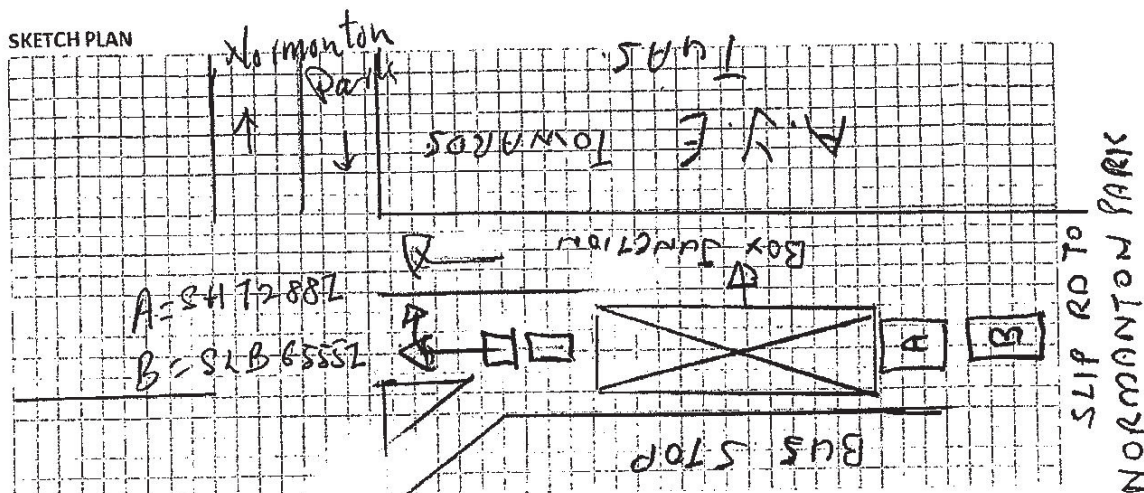 SKETCH PLAN
Normonton
Park
TUAS
A.Y.E TOWARDS
BOX JUNCTION
B = SLB6555Z
A
B
BUS STOP
SLIP RD TO
NORMANTON PARK